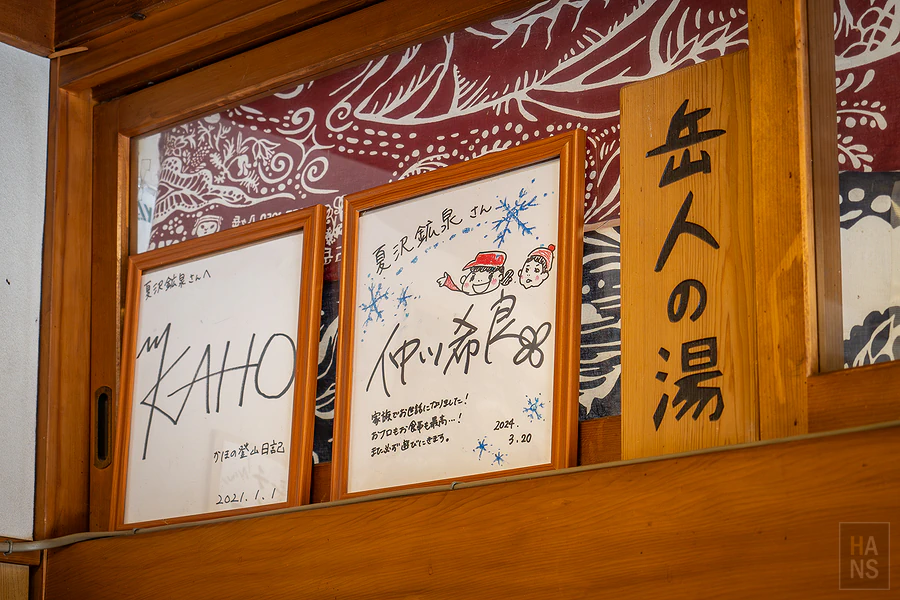 夏沢鉱泉さんへ
KAHO
かほの登山日記
2021.1.1
夏沢鉱泉さん
仲川希良
家族でお世話になりました!
おフロもお食事も最高…!
また必ず遊びにきます。
2024.
3.20
岳人の湯
HA
NS